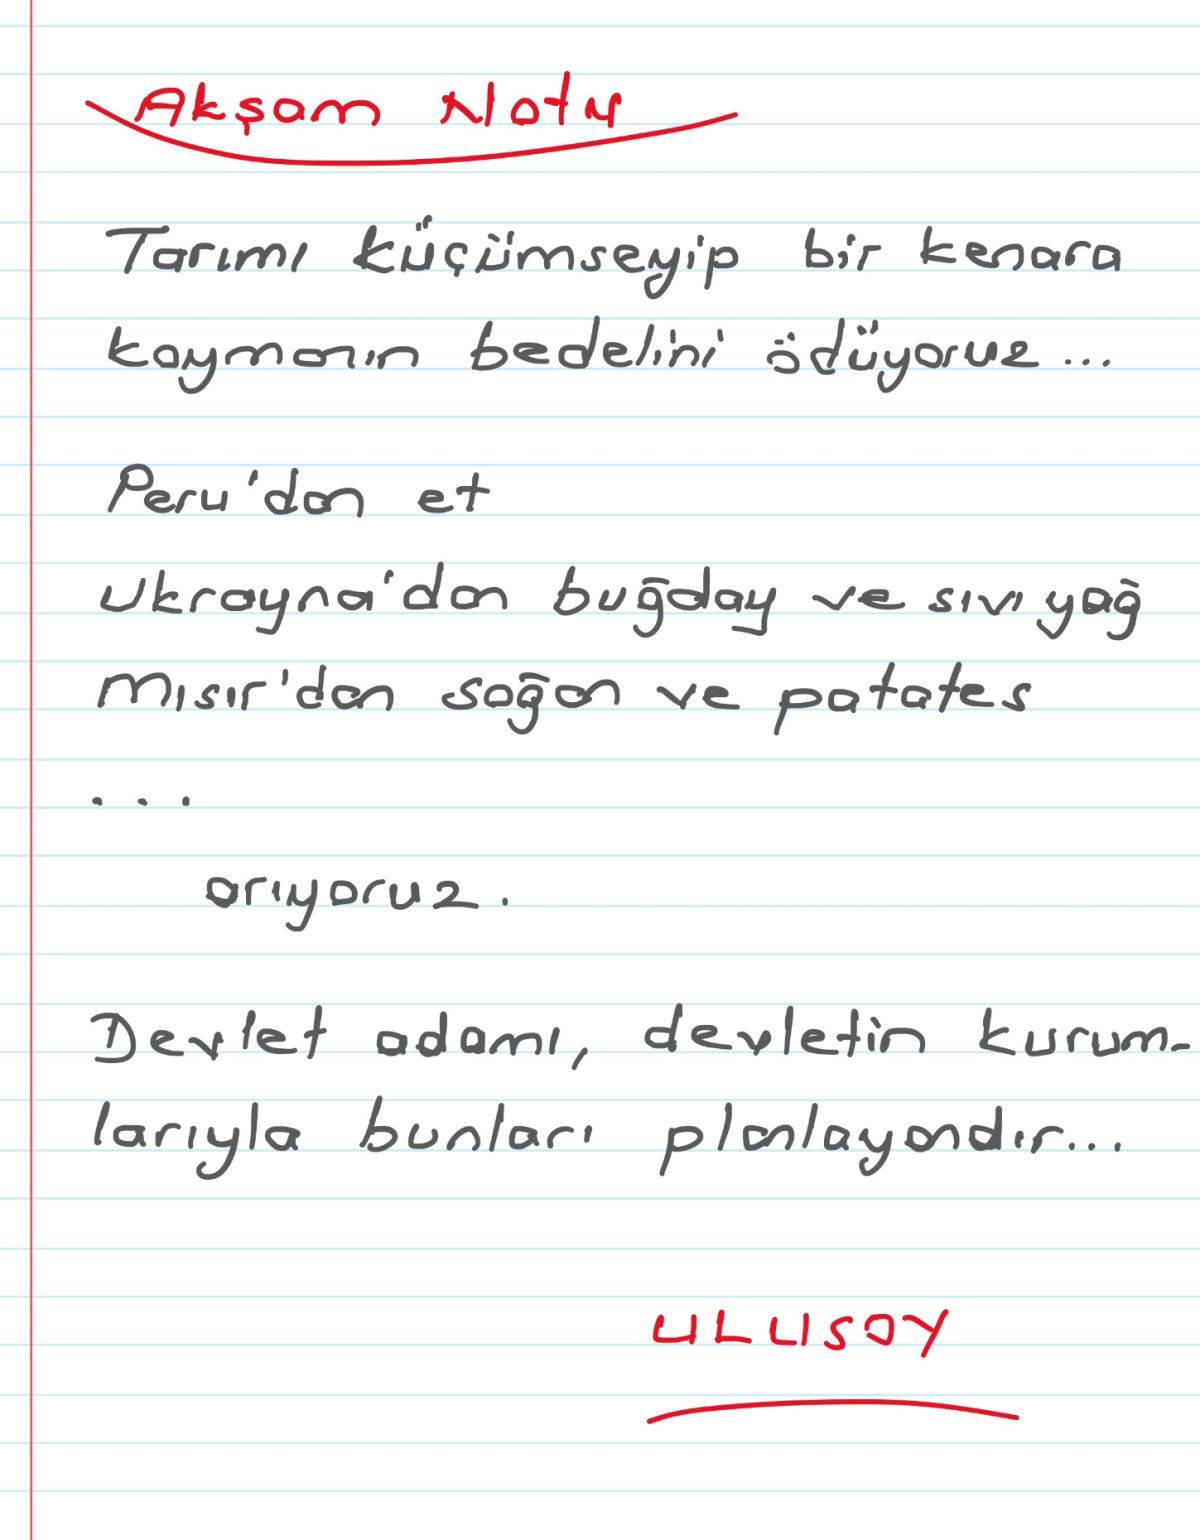 Akşam Notu
Tarımı küçümseyip bir kenara
koymanın bedelini ödüyoruz...
Peru'dan et
Ukrayna'dan buğday ve sıvı yağ
Mısır'dan soğan ve patates
...
arıyoruz.
Devlet adamı, devletin kurum-
larıyla bunları planlayandır...
ULUSOY